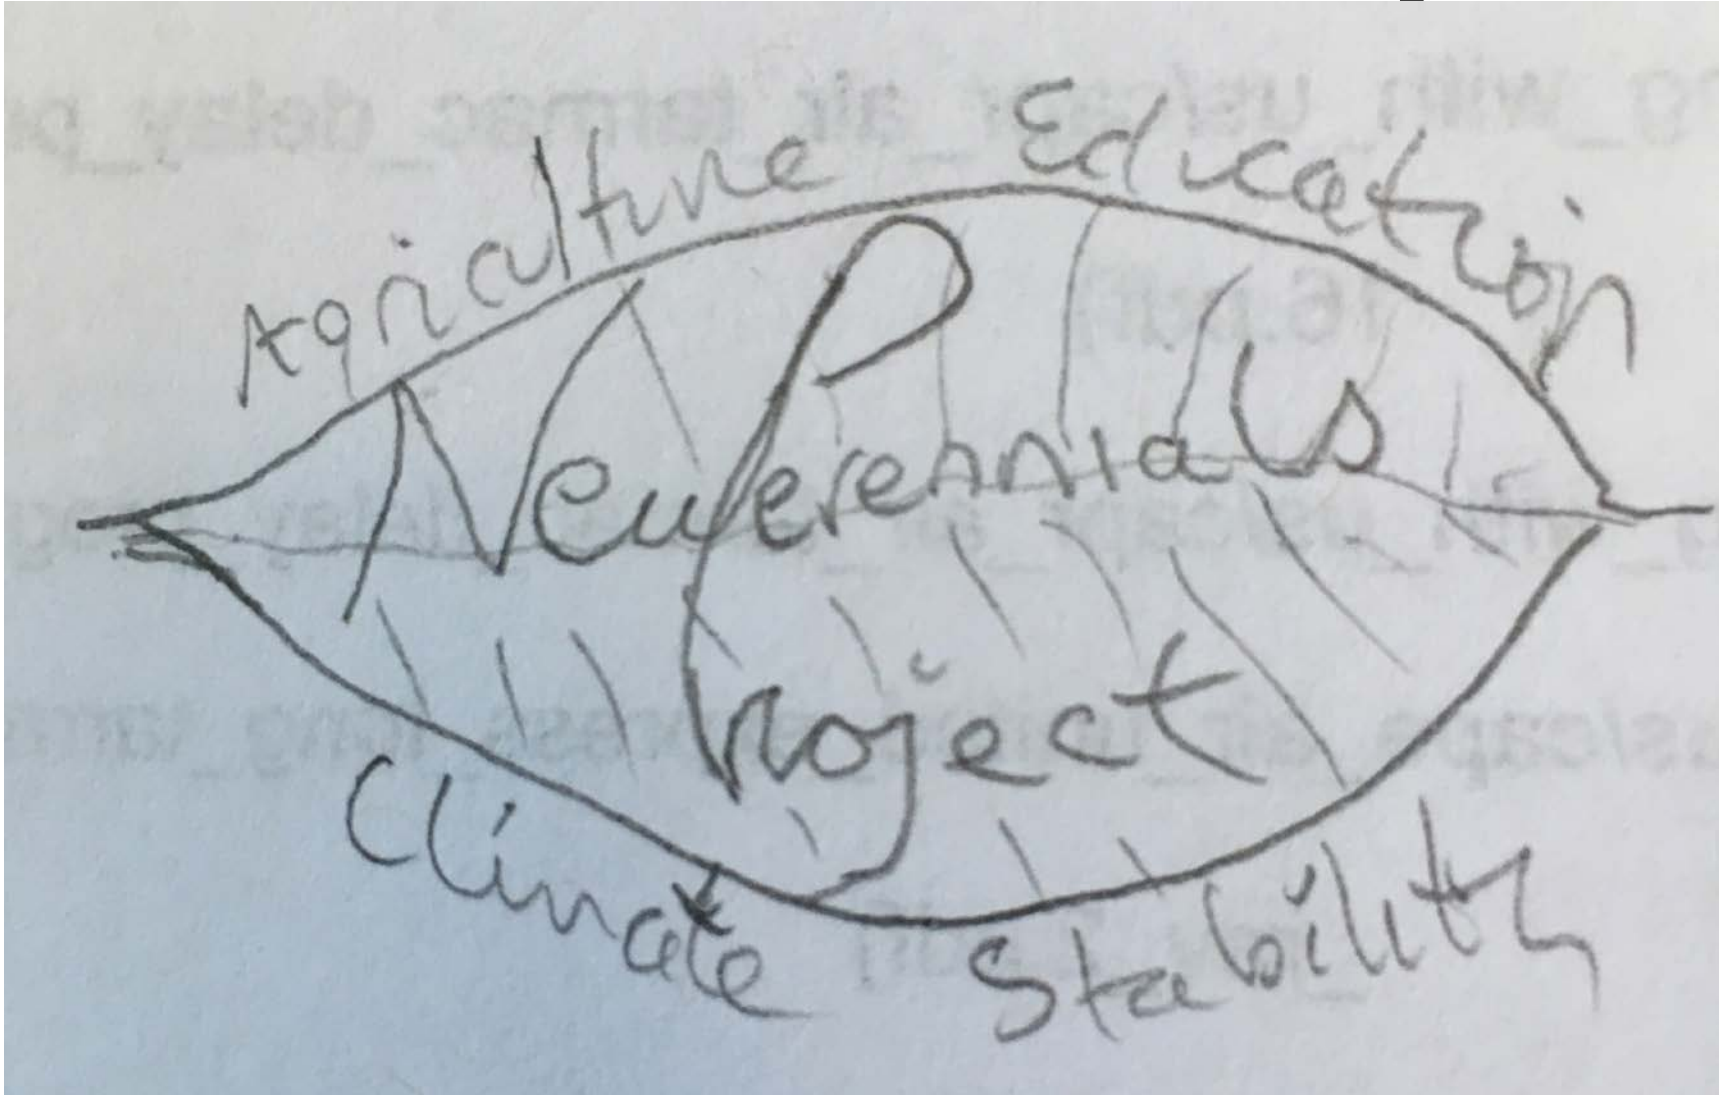 Agriculture Education
New Perennials
Project
Climate Stability